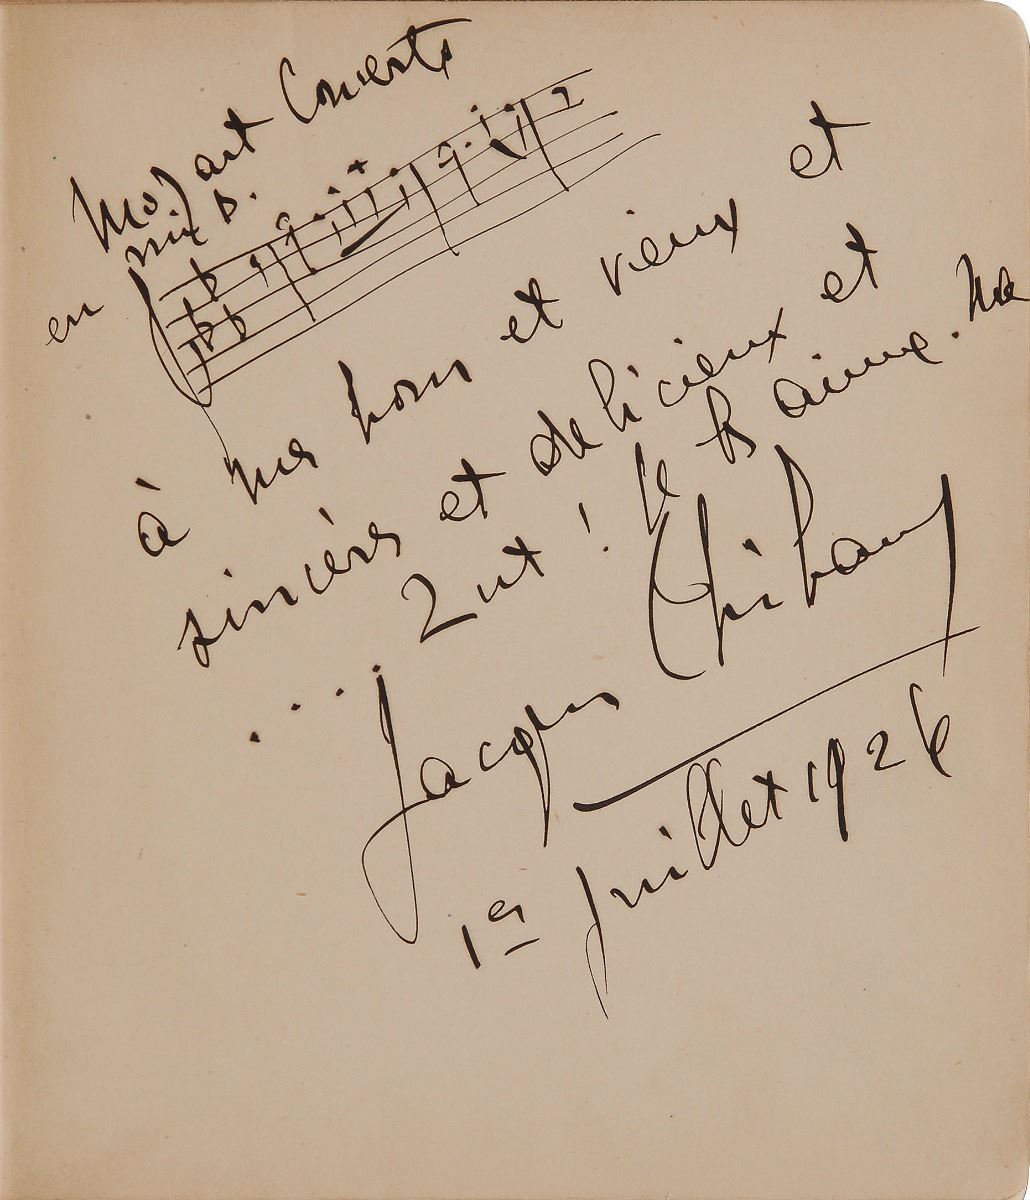 Mozart Concerto
en mi b.
à mes bons et vieux et
sincères et délicieux et
... Zut ! Je les aime.
Jacques Thibaud
1er juillet 1926